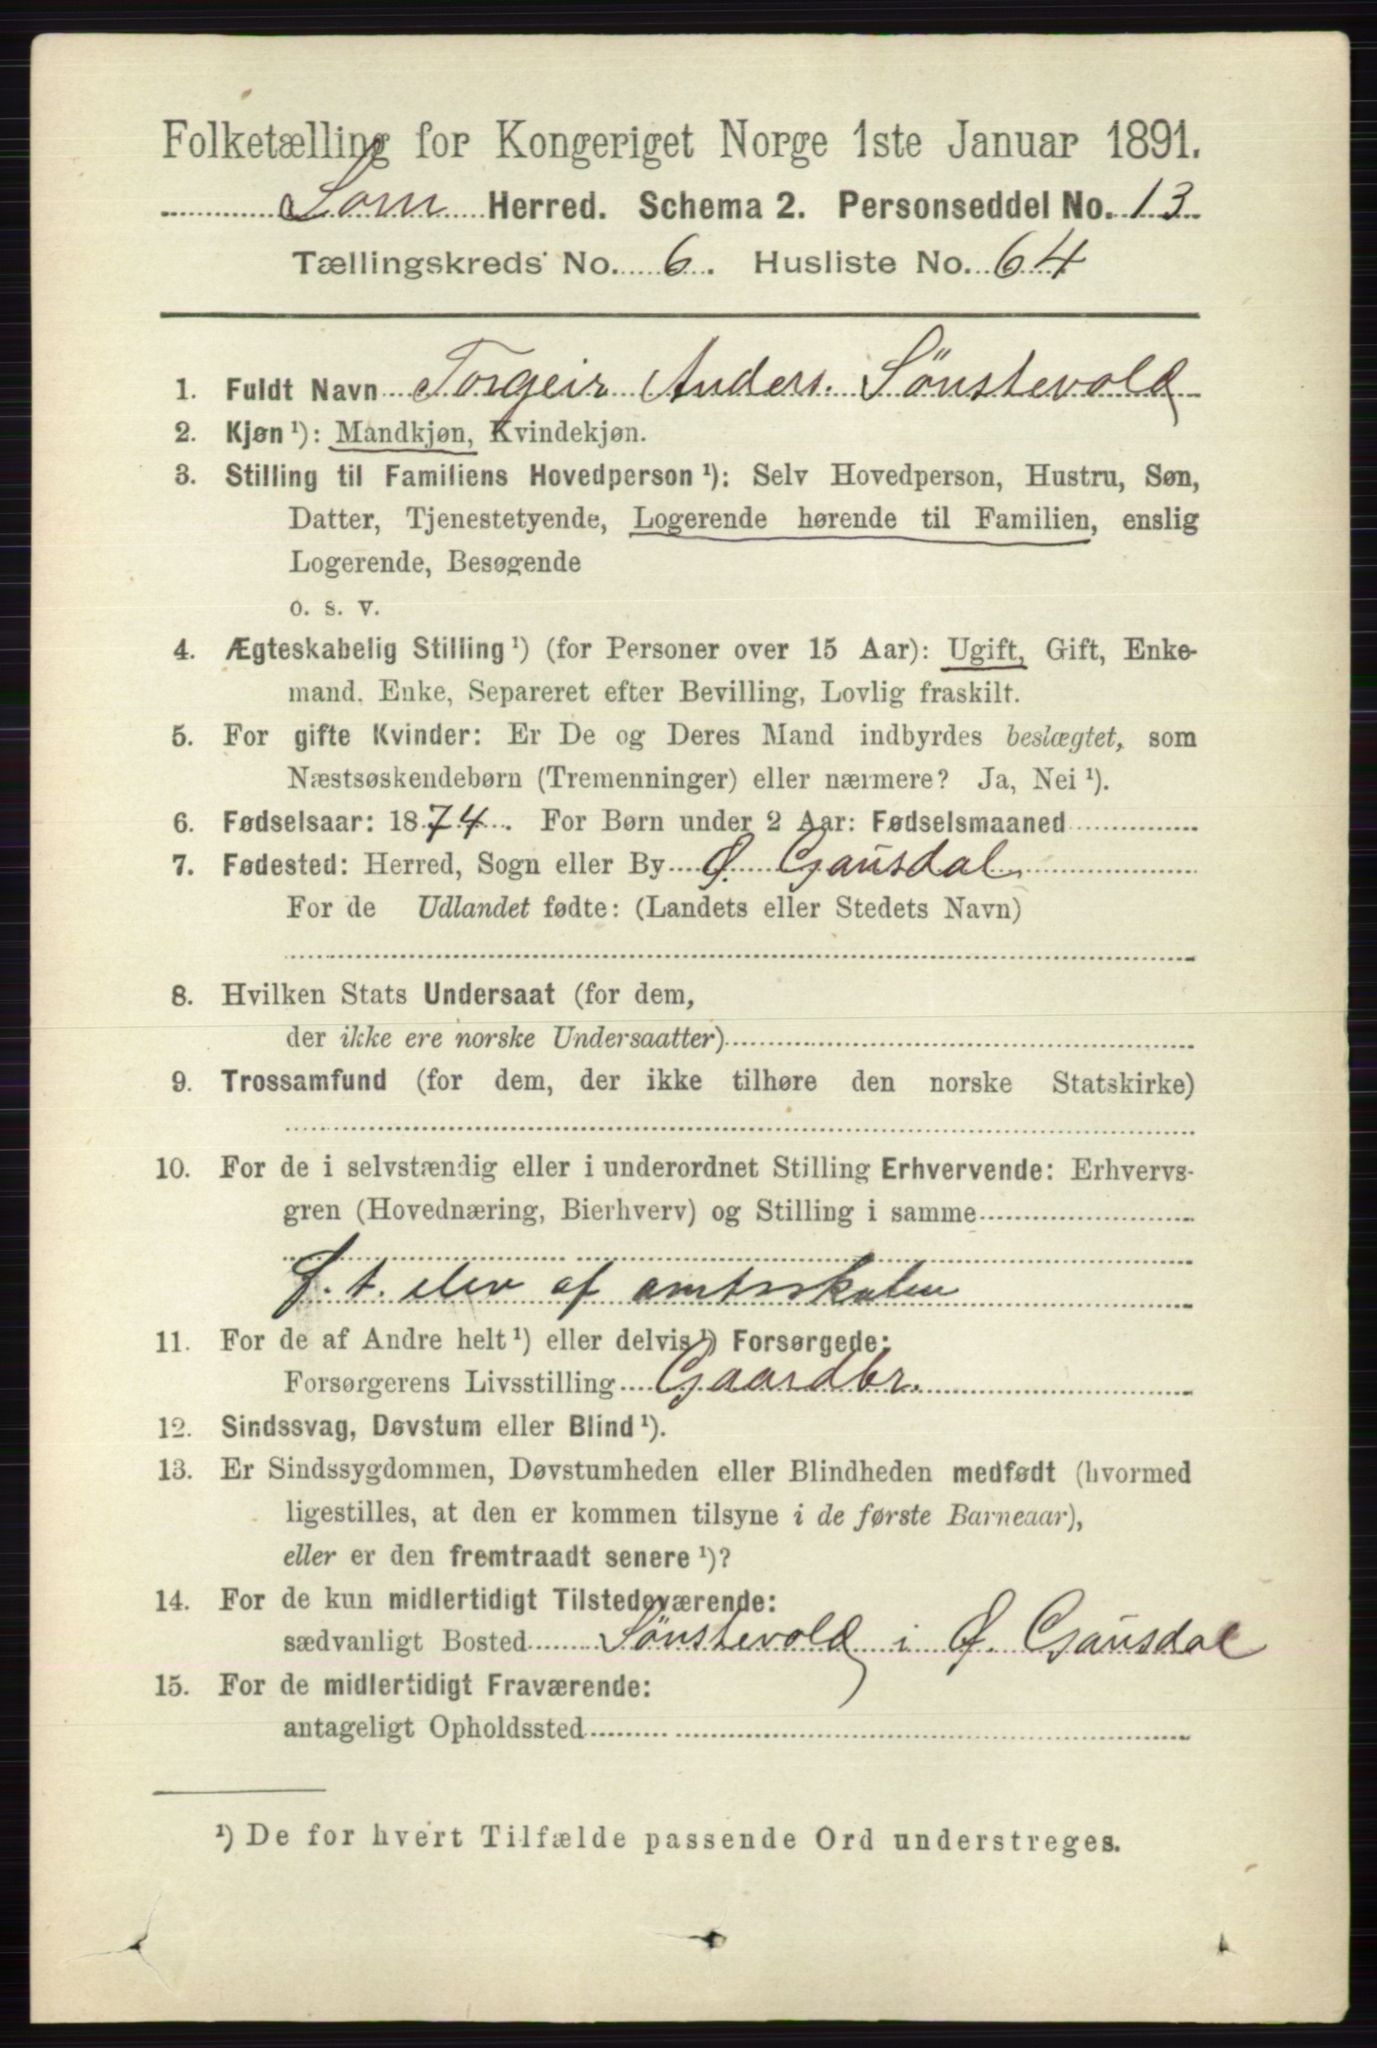 Folketælling for Kongeriget Norge 1ste Januar 1891.
Lom Herred. Schema 2. Personseddel No. 13
Tællingskreds No. 6. Husliste No. 64
1. Fuldt Navn Torgeir Anders. Sönstevold
2. Kjøn ¹): Mandkjøn, Kvindekjøn.
3. Stilling til Familiens Hovedperson ¹): Selv Hovedperson, Hustru, Søn,
Datter, Tjenestetyende, Logerende hørende til Familien, enslig
Logerende, Besøgende
o. s. v.
4. Ægteskabelig Stilling ¹) (for Personer over 15 Aar): Ugift, Gift, Enke-
mand, Enke, Separeret efter Bevilling, Lovlig fraskilt.
5. For gifte Kvinder: Er De og Deres Mand indbyrdes beslægtet, som
Næstsøskendebørn (Tremenninger) eller nærmere? Ja, Nei ¹).
6. Fødselsaar: 1874. For Børn under 2 Aar: Fødselsmaaned
7. Fødested: Herred, Sogn eller By Ø. Gausdal
For de Udlandet fødte: (Landets eller Stedets Navn)
8. Hvilken Stats Undersaat (for dem,
der ikke ere norske Undersaatter)
9. Trossamfund (for dem, der ikke tilhøre den norske Statskirke)
10. For de i selvstændig eller i underordnet Stilling Erhvervende: Erhvervs-
gren (Hovednæring, Bierhverv) og Stilling i samme
f. t. elev af amtsskolen
11. For de af Andre helt ¹) eller delvis ¹) Forsørgede:
Forsørgerens Livsstilling Gaardbr.
12. Sindssvag, Døvstum eller Blind ¹).
13. Er Sindssygdommen, Døvstumheden eller Blindheden medfødt (hvormed
ligestilles, at den er kommen tilsyne i de første Barneaar),
eller er den fremtraadt senere ¹)?
14. For de kun midlertidigt Tilstedeværende:
sædvanligt Bosted Sönstevold i Ø. Gausdal
15. For de midlertidigt Fraværende:
antageligt Opholdssted
¹) De for hvert Tilfælde passende Ord understreges.